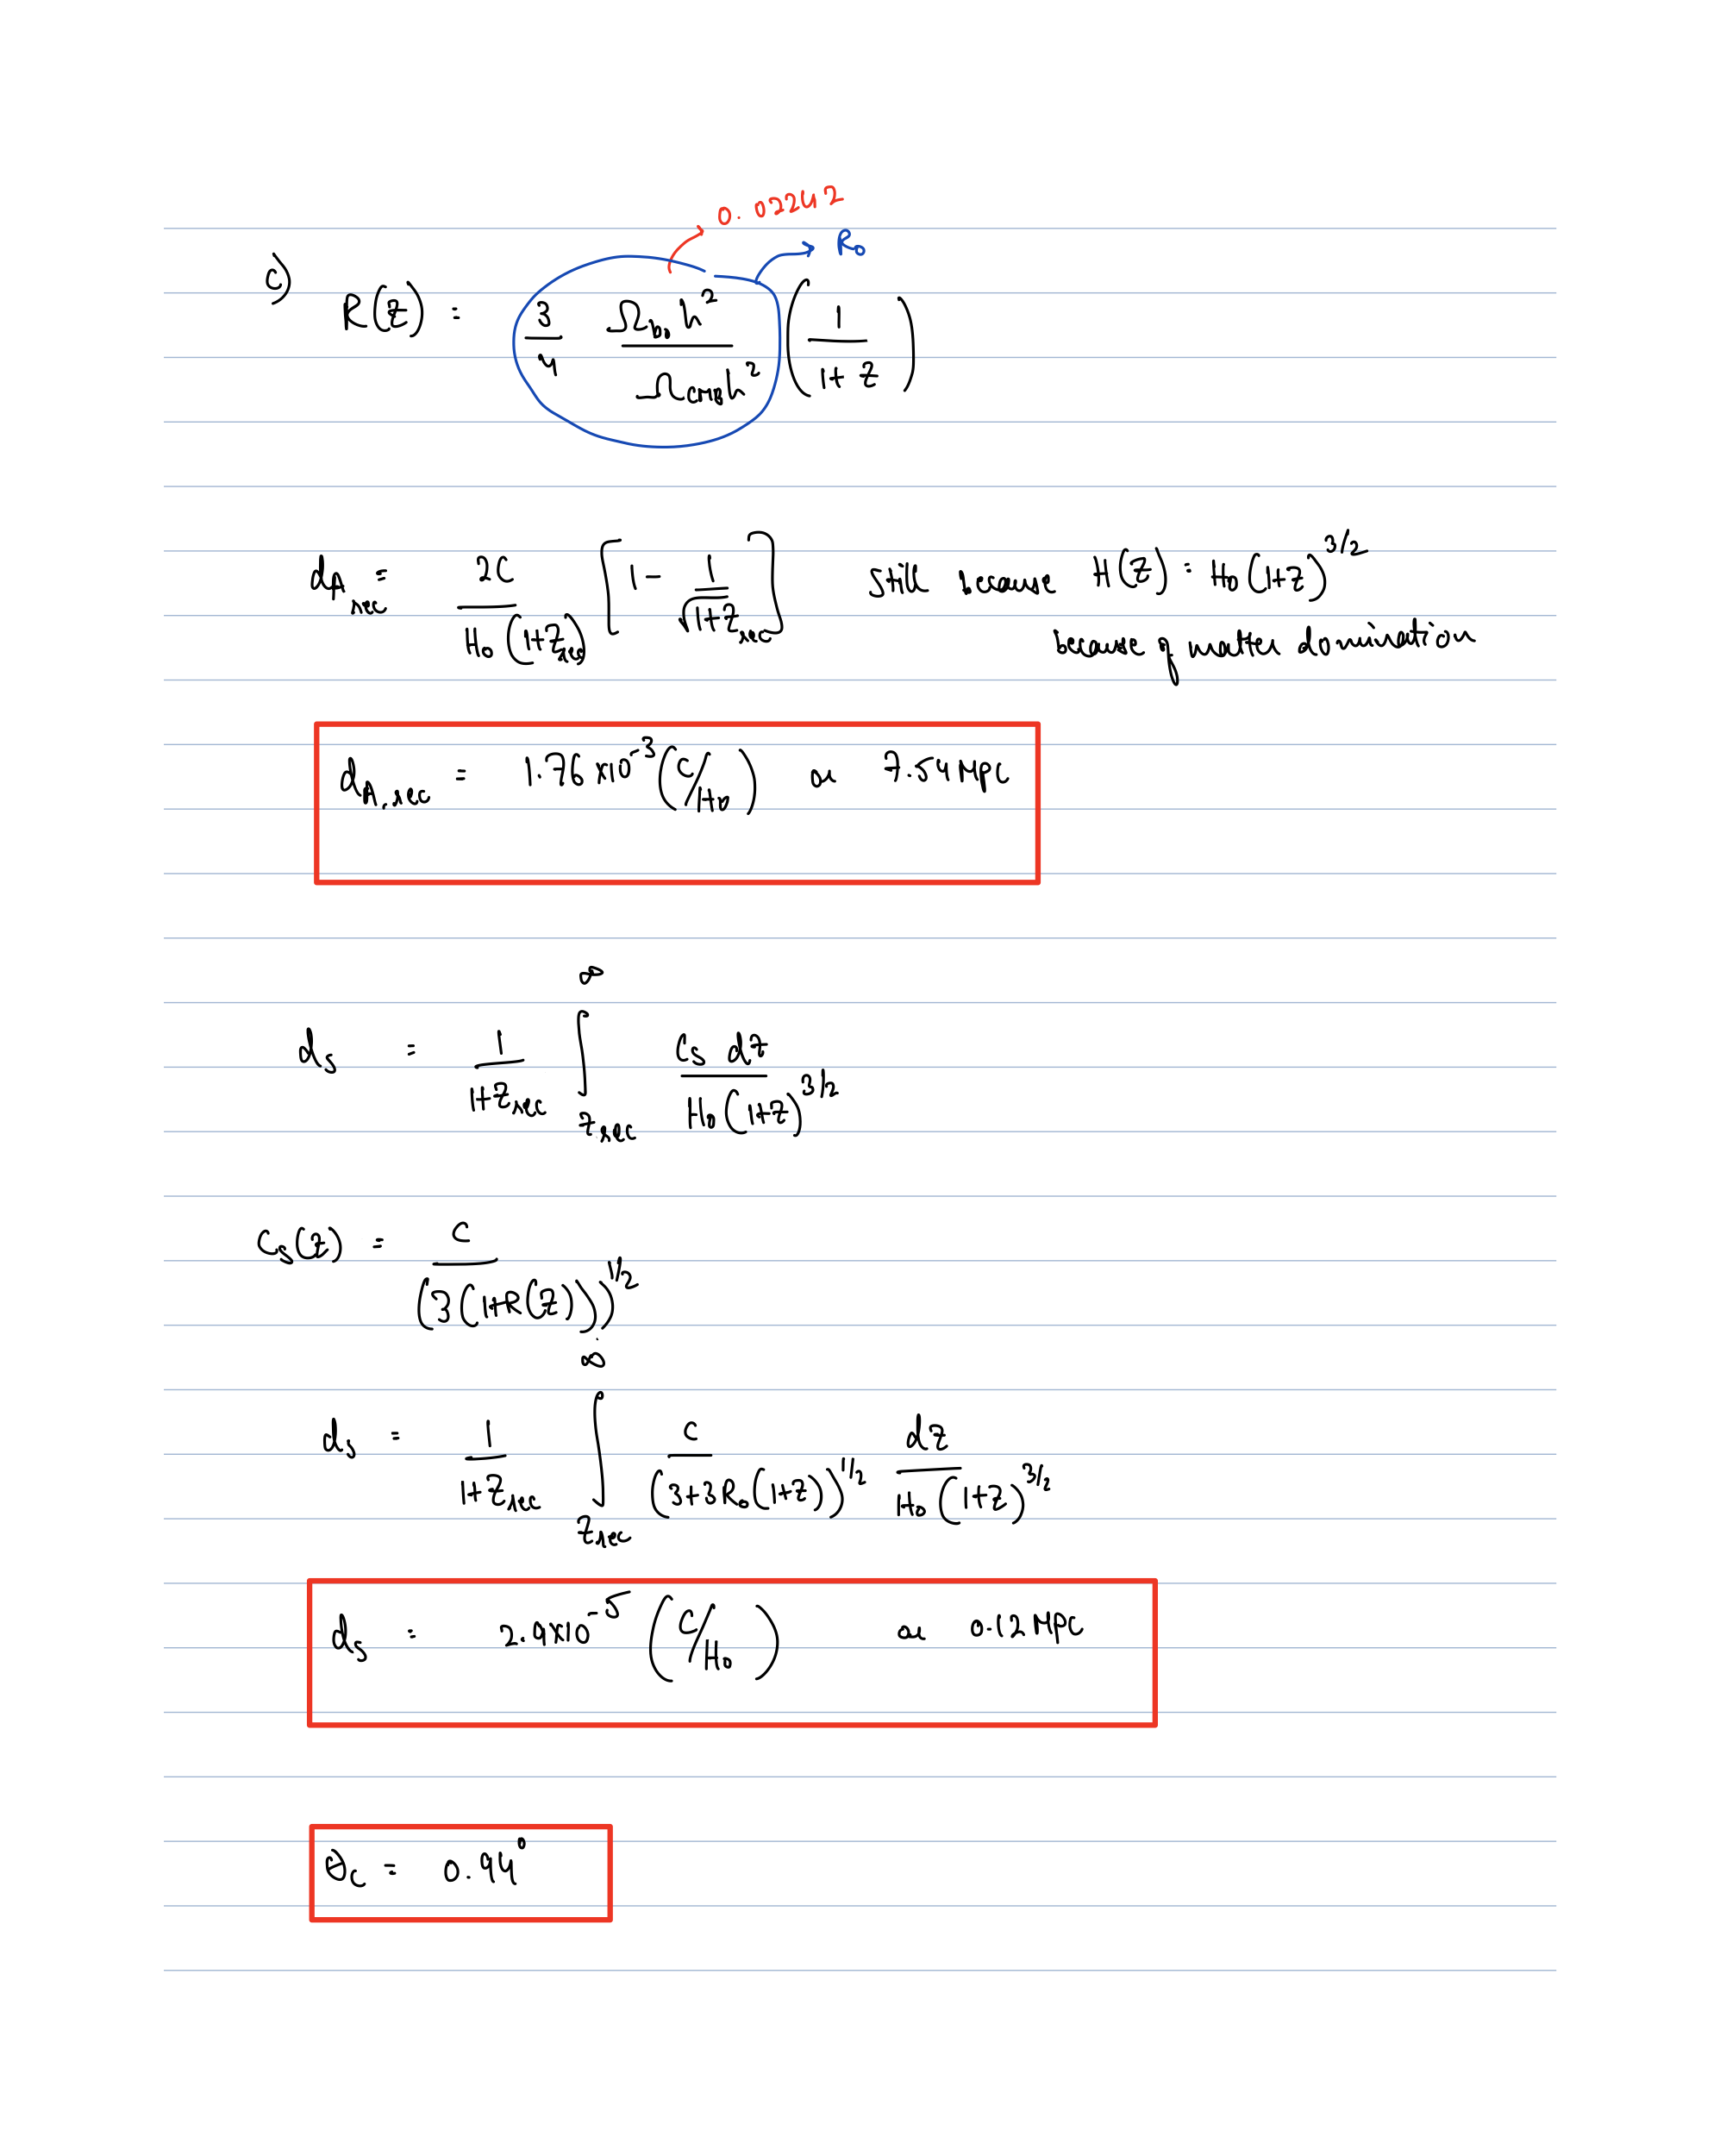 0.02242
R₀
c) R(z) = 3/4 Ω_b₀ h² / Ω_CMB h² (1/(1+z))
d_A_rec = 2c / H₀(1+z_rec) [1 - 1/√(1+z_rec)] still because H(z) = H₀(1+z)^(3/2)
because of matter domination
d_A,rec = 1.76×10⁻³ (c/H₀) or 7.54 Mpc
d_s = 1/(1+z_rec) ∫_{z_rec}^{∞} c_s dz / H₀(1+z)^(3/2)
c_s(z) = c / (3(1+R(z)))^(1/2)
d_s = 1/(1+z_rec) ∫_{z_rec}^{∞} c / (3+3R₀(1+z))^(1/2) dz / H₀(1+z)^(3/2)
d_s = 2.9×10⁻⁵ (c/H₀) or 0.12 Mpc
θ_c = 0.94°